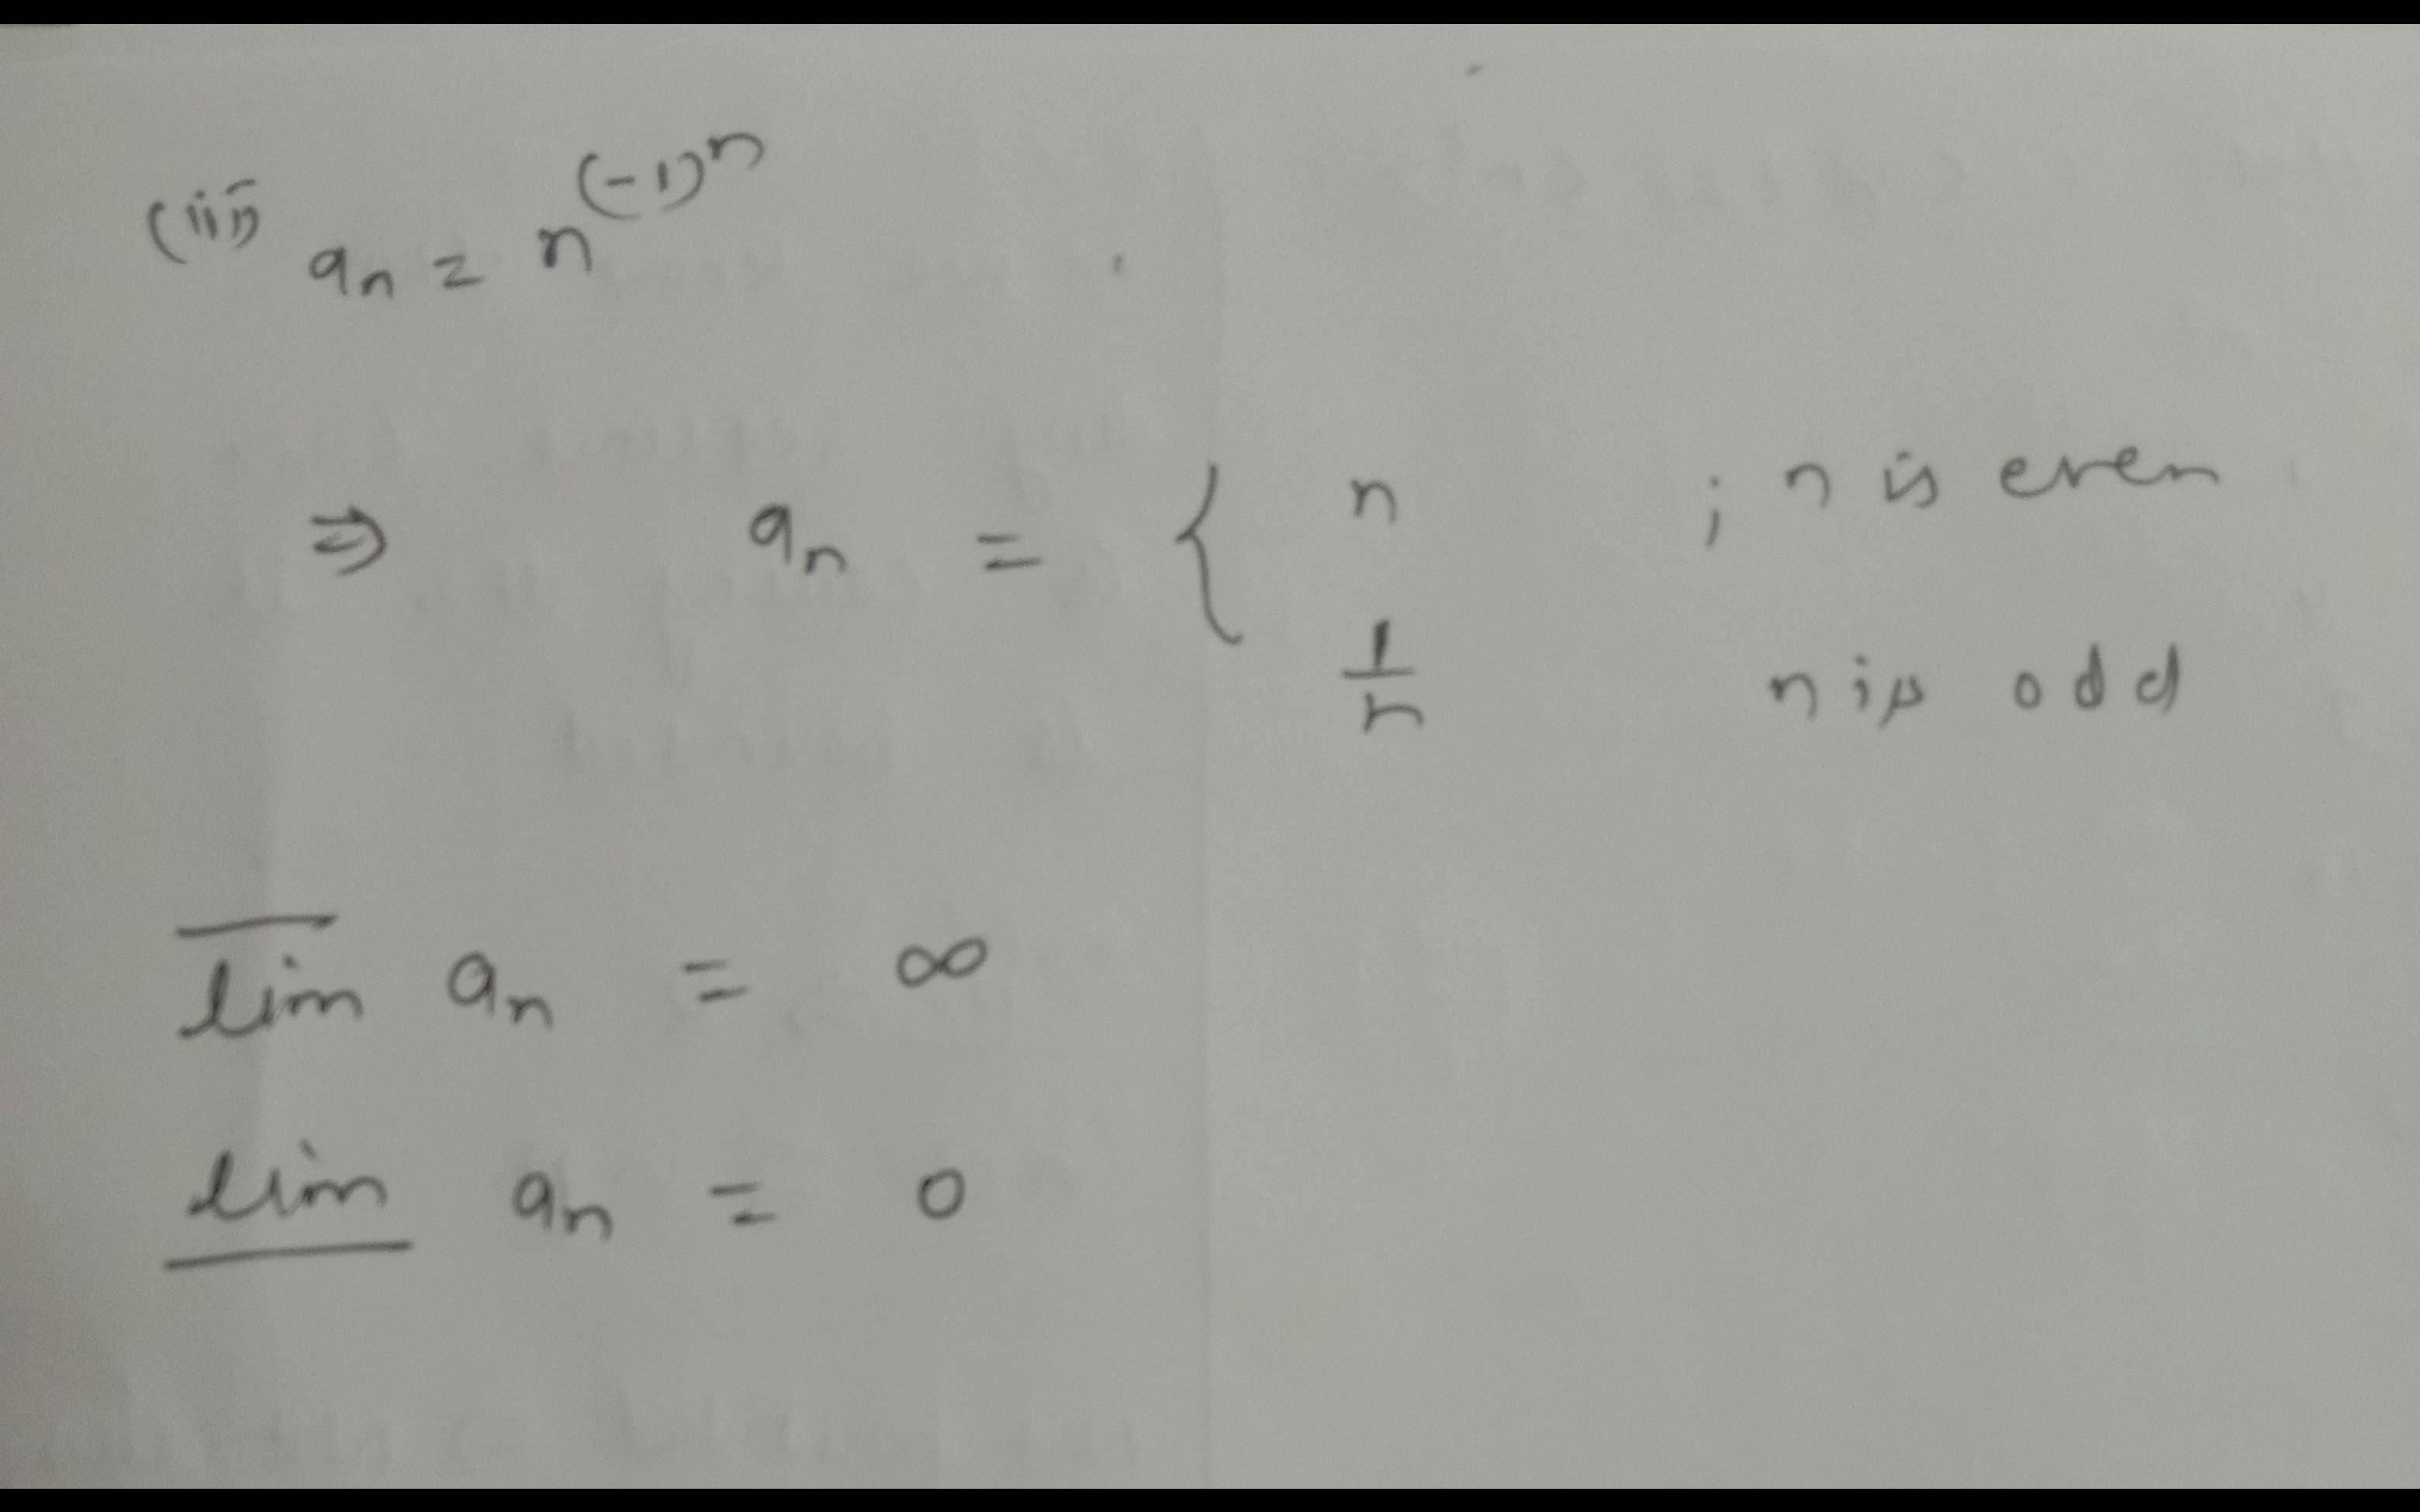 (iii) aₙ = n^(-1)^n
⇒ aₙ = { n ; n is even
1/n n is odd
l̅i̅m̅ aₙ = ∞
l̲i̲m̲ aₙ = 0